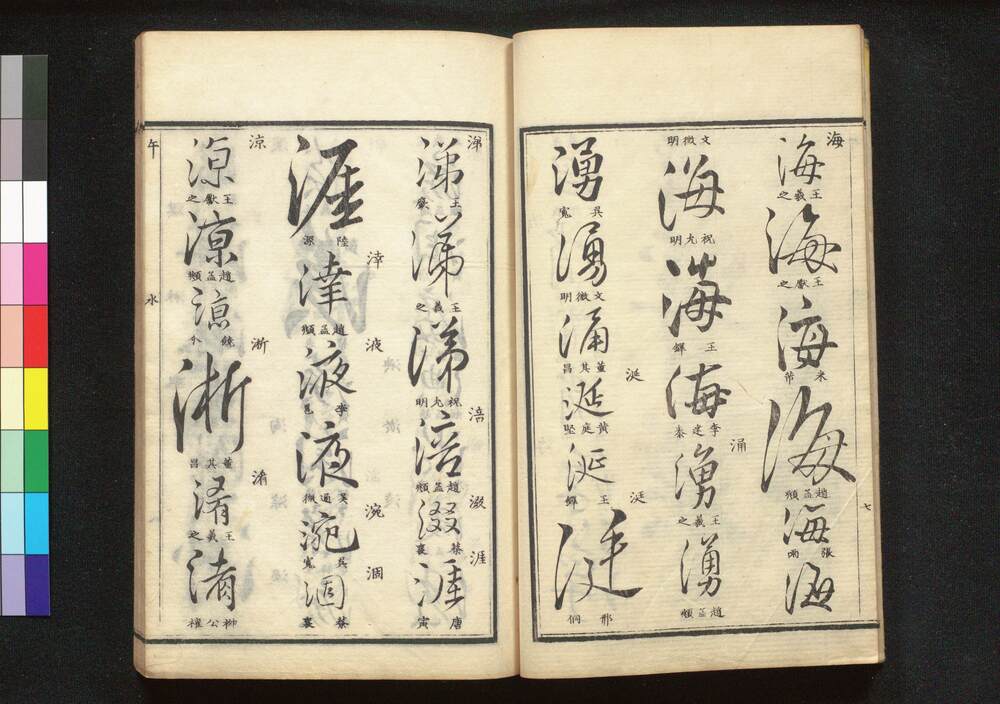 海
海
王羲之
海
王獻之
海
米芾
海
趙孟頫
海
張雨
海
文徵明
海
祝允明
海
王鐸
海
李建泰
涌
湧
王羲之
湧
趙孟頫
湧
吳寬
湧
文徵明
涌
董其昌
涎
涎
黃庭堅
涎
王鐸
涏
涏
邢侗
七
涕
王獻
涕
王羲之
涕
祝允明
涪
涪
趙孟頫
涰
蔡襄
涯
涯
唐寅
涯
陸深
涬
趙孟頫
液
液
李邕
液
吳通微
涴
涴
吳寬
涸
涸
蔡襄
涼
涼
王獻之
涼
趙孟頫
涼
淅
淅
董其昌
淆
淆
王羲之
淆
柳公權
午
水